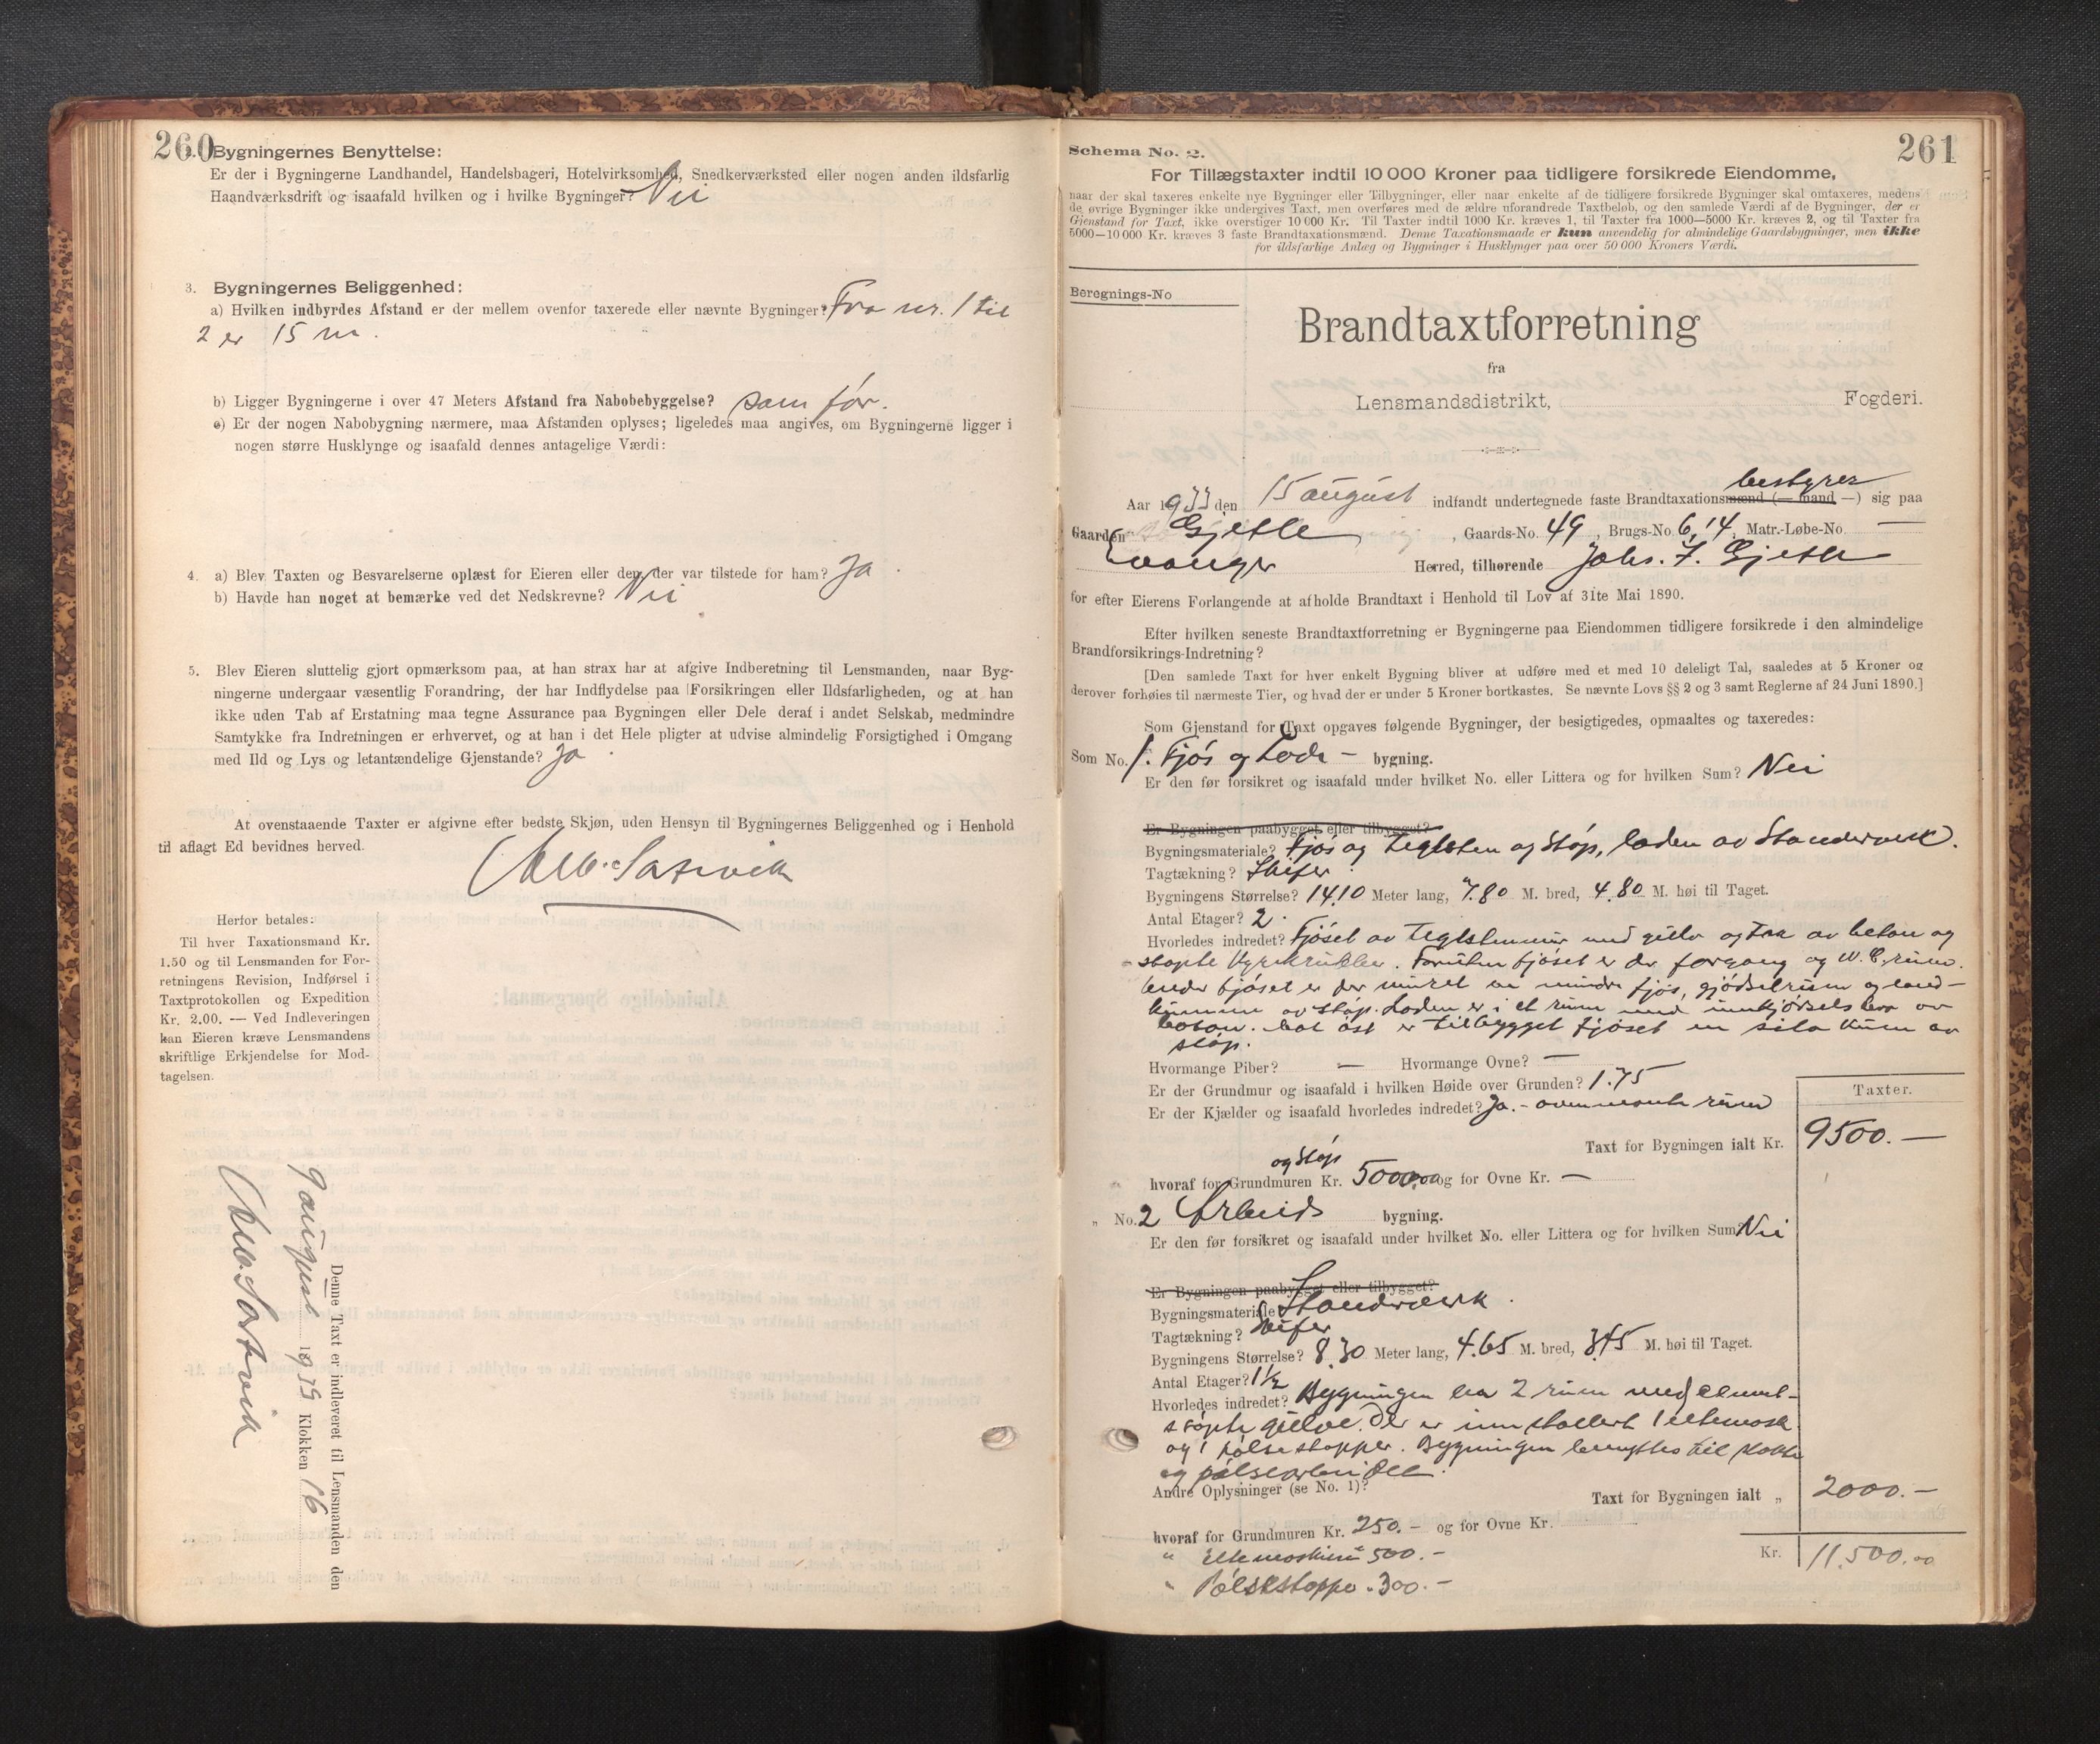 260
Bygningernes Benyttelse:
Er der i Bygningerne Landhandel, Handelsbageri, Hotelvirksomhed, Snedkerværksted eller nogen anden ildsfarlig
Haandværksdrift og isaafald hvilken og i hvilke Bygninger? Nei
3. Bygningernes Beliggenhed:
a) Hvilken indbyrdes Afstand er der mellem ovenfor taxerede eller nævnte Bygninger? Fra nr. 1 til
2 er 15 m.
b) Ligger Bygningerne i over 47 Meters Afstand fra Nabobebyggelse? som før.
c) Er der nogen Nabobygning nærmere, maa Afstanden oplyses; ligeledes maa angives, om Bygningerne ligger i
nogen større Husklynge og isaafald dennes antagelige Værdi:
4. a) Blev Taxten og Besvarelserne oplæst for Eieren eller den, der var tilstede for ham? Ja.
b) Havde han noget at bemærke ved det Nedskrevne? Nei
5. Blev Eieren sluttelig gjort opmærksom paa, at han strax har at afgive Indberetning til Lensmanden, naar Byg-
ningerne undergaar væsentlig Forandring, der har Indflydelse paa Forsikringen eller Ildsfarligheden, og at han
ikke uden Tab af Erstatning maa tegne Assurance paa Bygningen eller Dele deraf i andet Selskab, medmindre
Samtykke fra Indretningen er erhvervet, og at han i det Hele pligter at udvise almindelig Forsigtighed i Omgang
med Ild og Lys og letantændelige Gjenstande? Ja.
At ovenstaaende Taxter er afgivne efter bedste Skjøn, uden Hensyn til Bygningernes Beliggenhed og i Henhold
til aflagt Ed bevidnes herved.
Herfor betales:
Til hver Taxationsmand Kr.
1.50 og til Lensmanden for For-
retningens Revision, Indførsel i
Taxtprotokollen og Expedition
Kr. 2.00. — Ved Indleveringen
kan Eieren kræve Lensmandens
skriftlige Erkjendelse for Mod-
tagelsen.
Denne Taxt er indleveret til Lensmanden den
9 august 1939 Klokken 16
261
Schema No. 2.
For Tillægstaxter indtil 10 000 Kroner paa tidligere forsikrede Eiendomme,
naar der skal taxeres enkelte nye Bygninger eller Tilbygninger, eller naar enkelte af de tidligere forsikrede Bygninger skal omtaxeres, medens
de øvrige Bygninger ikke undergives Taxt, men overføres med de ældre uforandrede Taxtbeløb, og den samlede Værdi af de Bygninger, der er
Gjenstand for Taxt, ikke overstiger 10 000 Kr. Til Taxter indtil 1000 Kr. kræves 1, til Taxter fra 1000—5000 Kr. kræves 2, og til Taxter fra
5000—10 000 Kr. kræves 3 faste Brandtaxationsmænd. Denne Taxationsmaade er kun anvendelig for almindelige Gaardsbygninger, men ikke
for ildsfarlige Anlæg og Bygninger i Husklynger paa over 50 000 Kroners Værdi.
Beregnings-No
Brandtaxtforretning
fra
Lensmandsdistrikt, Fogderi.
bestyrer
Aar 1933 den 15 august indfandt undertegnede faste Brandtaxationsmænd (— mand —) sig paa
Gaarden Gjetle, Gaards-No. 49, Brugs-No. 6, 14, Matr.-Løbe-No —
Evanger Herred, tilhørende Johs. I. Gjetle
for efter Eierens Forlangende at afholde Brandtaxt i Henhold til Lov af 31te Mai 1890.
Efter hvilken seneste Brandtaxtforretning er Bygningerne paa Eiendommen tidligere forsikrede i den almindelige
Brandforsikrings-Indretning?
[Den samlede Taxt for hver enkelt Bygning bliver at udføre med et med 10 deleligt Tal, saaledes at 5 Kroner og
derover forhøies til nærmeste Tier, og hvad der er under 5 Kroner bortkastes. Se nævnte Lovs §§ 2 og 3 samt Reglerne af 24 Juni 1890.]
Som Gjenstand for Taxt opgaves følgende Bygninger, der besigtigedes, opmaaltes og taxeredes:
Som No. 1. Fjøs og Lade - bygning.
Er den før forsikret og isaafald under hvilket No. eller Littera og for hvilken Sum? Nei
Er Bygningen paabygget eller tilbygget?
Bygningsmateriale? Fjøs og Teglsten og støp, laden av Standerverk.
Tagtækning? Skifer
Bygningens Størrelse? 14.10 Meter lang, 7.80 M. bred, 4.80 M. høi til Taget.
Antal Etager? 2.
Hvorledes indredet? Fjøset av Teglstenmur med gulv og tak av beton og
støpte kyrekrubber. Foruten fjøset er der forgang og W.C. rum.
Under fjøset er der muret en mindre fjøs, gjødselrum og land-
kumme av støp. Laden er i et rum med innkjørselsbro av
beton. Mot øst er tilbygget fjøset en silo kum av
støp.
Hvormange Piber? — Hvormange Ovne? —
Er der Grundmur og isaafald i hvilken Høide over Grunden? 1.75
Er der Kjælder og isaafald hvorledes indredet? Ja. - ovennevnte rum
Taxter.
Taxt for Bygningen ialt Kr. 9500.—
og støp
hvoraf for Grundmuren Kr. 5000.00 og for Ovne Kr. —
„ No. 2 Arbeids bygning.
Er den før forsikret og isaafald under hvilket No. eller Littera og for hvilken Sum? Nei
Er Bygningen paabygget eller tilbygget?
Bygningsmateriale Standerverk.
Tagtækning? Skifer
Bygningens Størrelse? 8.30 Meter lang, 4.65 M. bred, 3.45 M. høi til Taget.
Antal Etager? 1½
Hvorledes indredet? Bygningen har 2 rum med cement-
støpte gulve. Der er innstallert 1 eltemask.
og 1 pølsestopper. Bygningen benyttes til slakte
og pølsearbeidee.
Andre Oplysninger (se No. 1)?
Taxt for Bygningen ialt „ 2000.—
hvoraf for Grundmuren Kr. 250.- og for Ovne Kr.
„ Eltemaskine 500.-
„ Pølsestoppe „ 300.-
Kr. 11.500.00